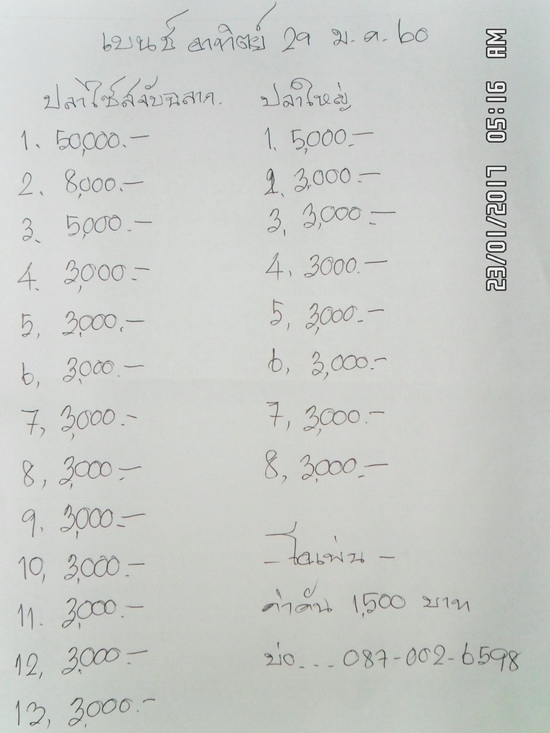 เบนซ์ อาทิตย์ 29 ม.ค. 60
ปลาไซส์จับฉลาก.
1. 50,000.-
2. 8,000.-
3. 5,000.-
4. 3,000.-
5, 3,000.-
6, 3,000.-
7, 3,000.-
8, 3,000.-
9. 3,000.-
10, 3,000.-
11. 3,000.-
12, 3,000.-
13, 3,000.-
ปลาใหญ่
1. 5,000.-
2. 3,000.-
3, 3,000.-
4. 3000.-
5, 3,000.-
6, 3,000.-
7, 3,000.-
8, 3,000.-
ค่าคัน 1,500 บาท
บ่อ... 087-002-6598
23/01/2017 05:16 AM